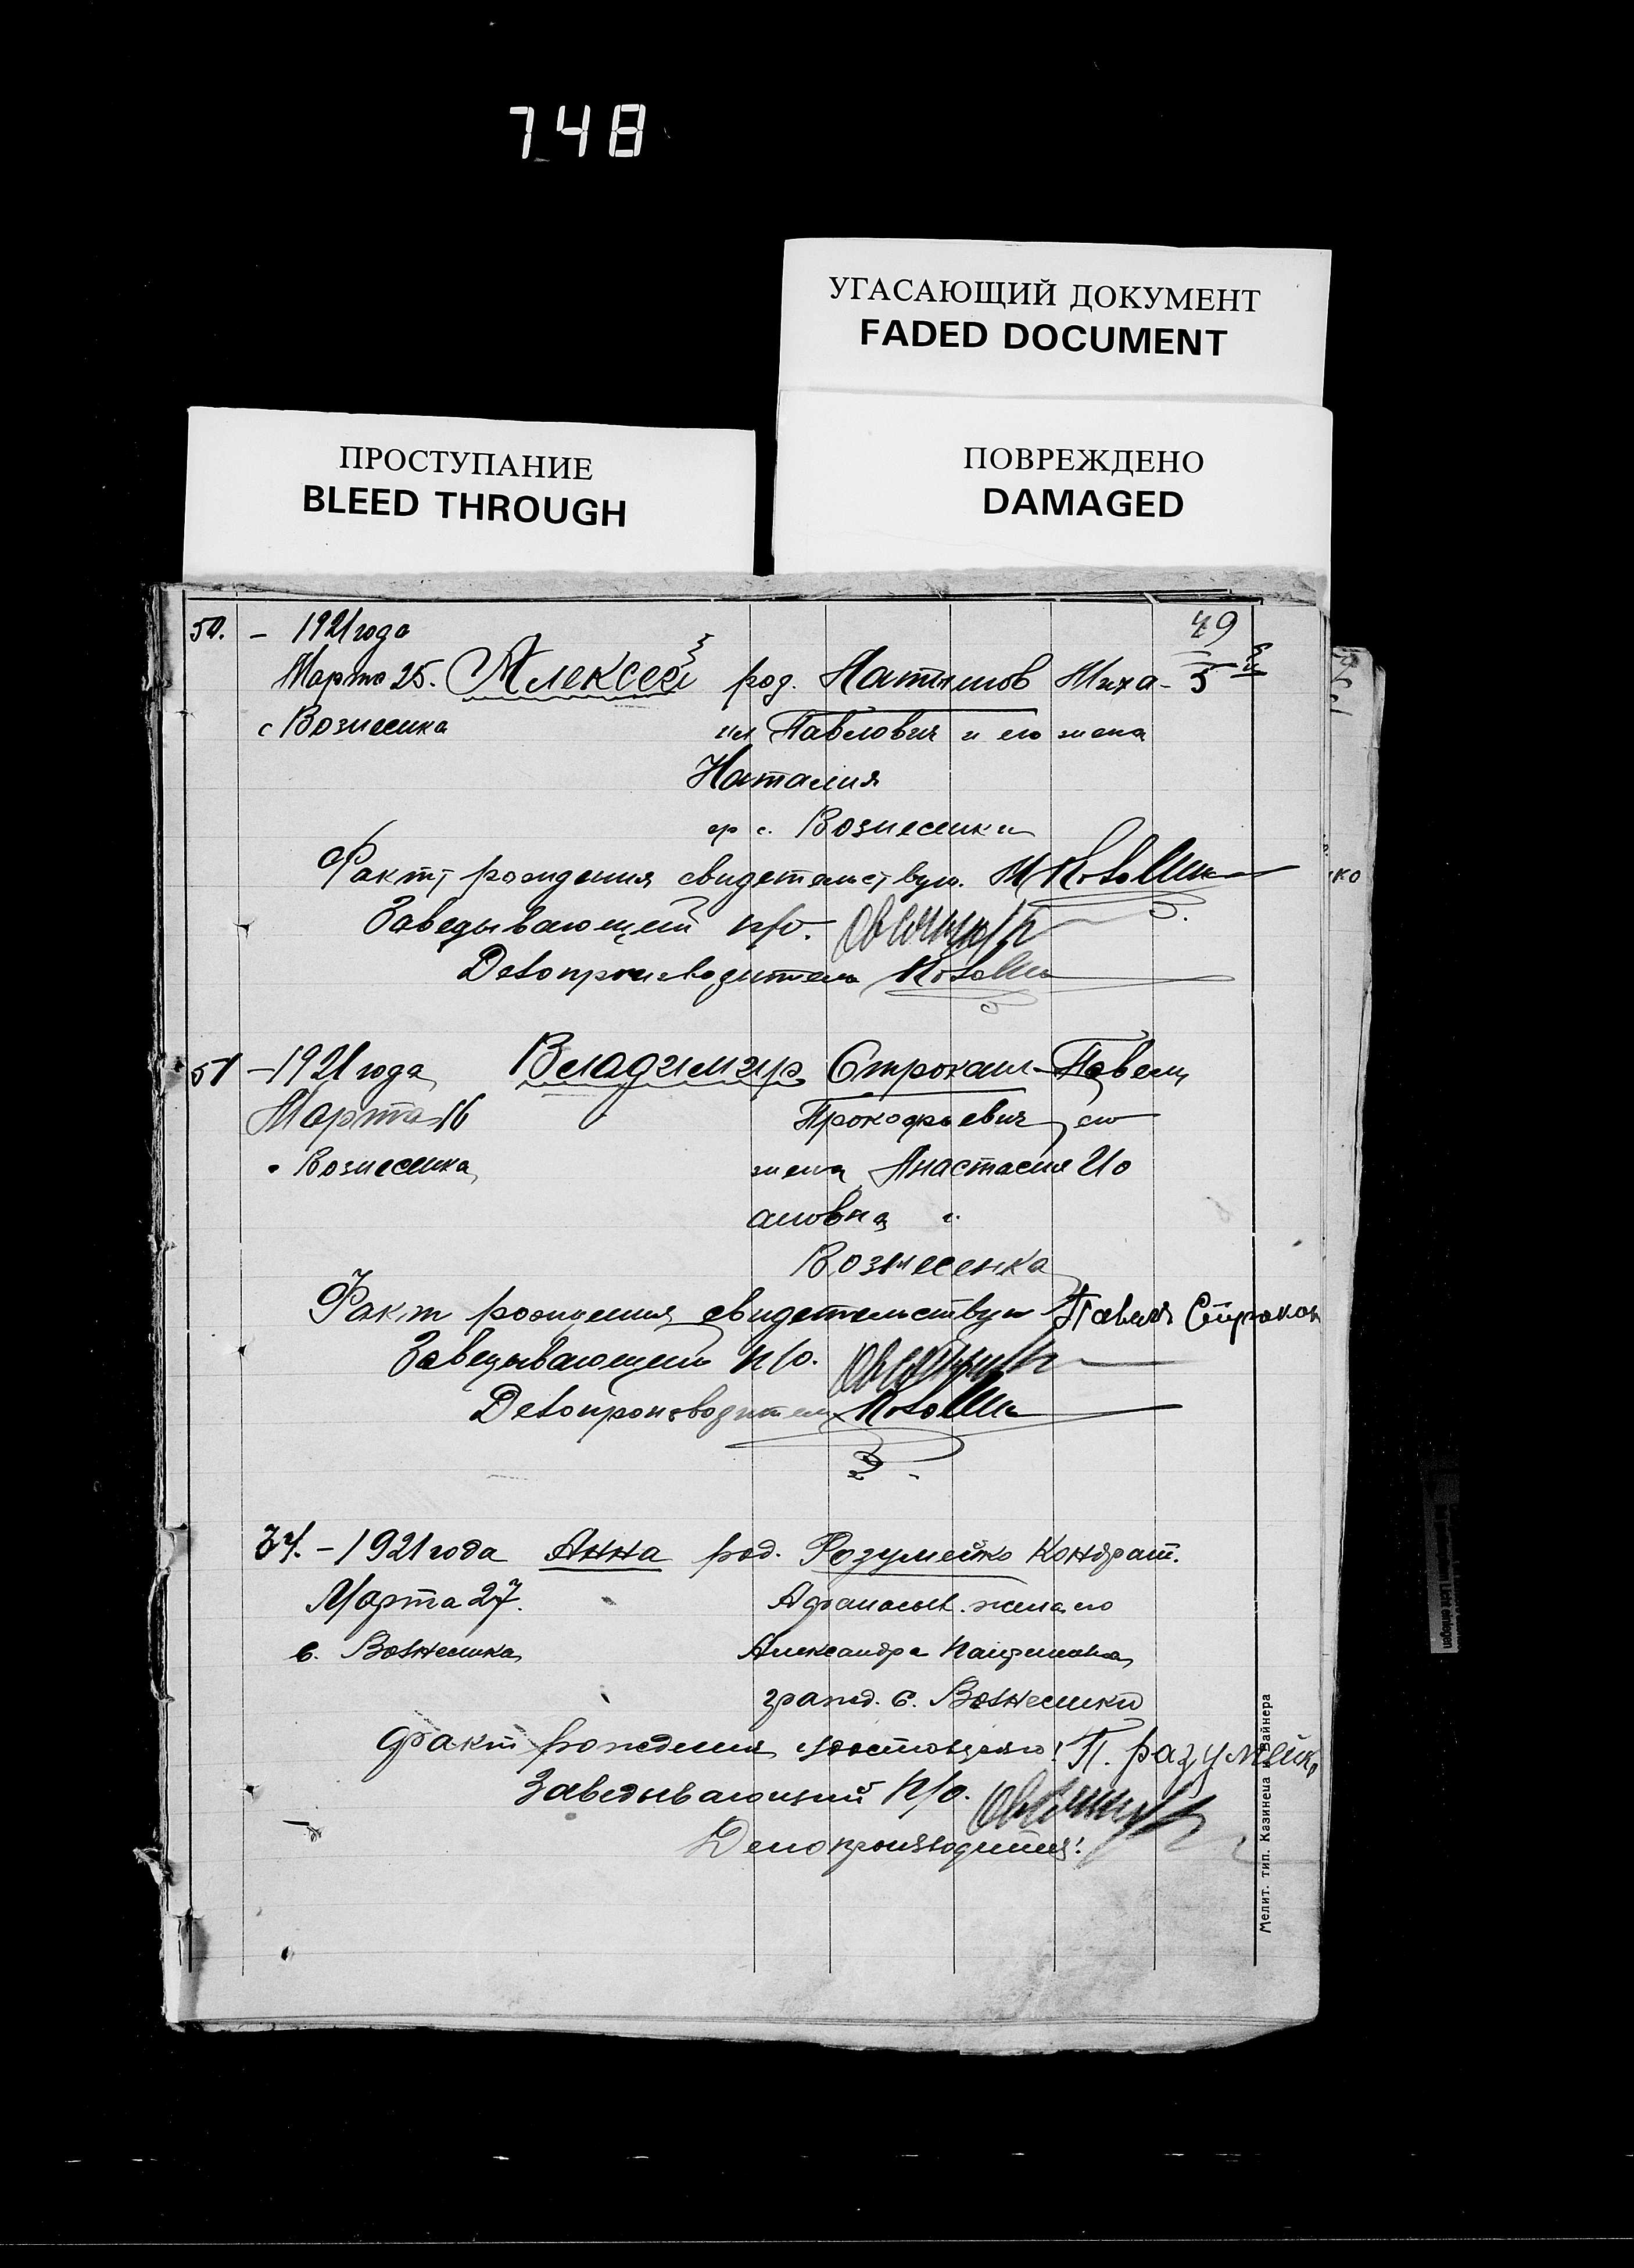 748
УГАСАЮЩИЙ ДОКУМЕНТ
FADED DOCUMENT
ПРОСТУПАНИЕ
BLEED THROUGH
ПОВРЕЖДЕНО
DAMAGED
49
50. – 1921 года
Марта 25. Алексей род. Миха- 5
с Вознесенка ил Павлович и его жена
Наталия
гр с. Вознесенки
Факт рождения свидетельствую.
Заведывающий п/о.
Делопроизводитель
51 – 1921 года Владимир Строкань Павел
Марта 16 Прокофьевич его
Вознесенка жена Анастасия Ио
ановна с.
Вознесенка
Факт рождения свидетельствую Павел Строкань
Заведывающий п/о.
Делопроизводитель
– 1921 года Анна род. Розумейко Кондрат.
Марта 27. Афанасьев. жена его
с. Вознесенка Александра
гражд. с. Вознесенки
факт рождения П. разумейко
Заведывающий п/о.
Делопроизводитель:
Мелит. тип. Казинеца и Вайнера